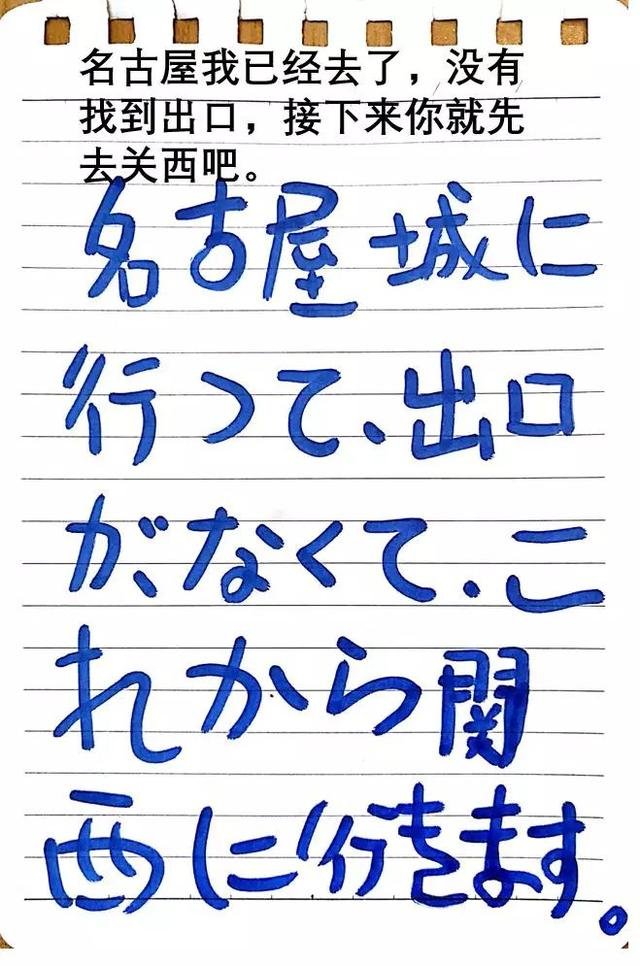 名古屋我已经去了，没有
找到出口，接下来你就先
去关西吧。
名古屋城に
行って、出口
がなくて、こ
れから関
西に行きます。